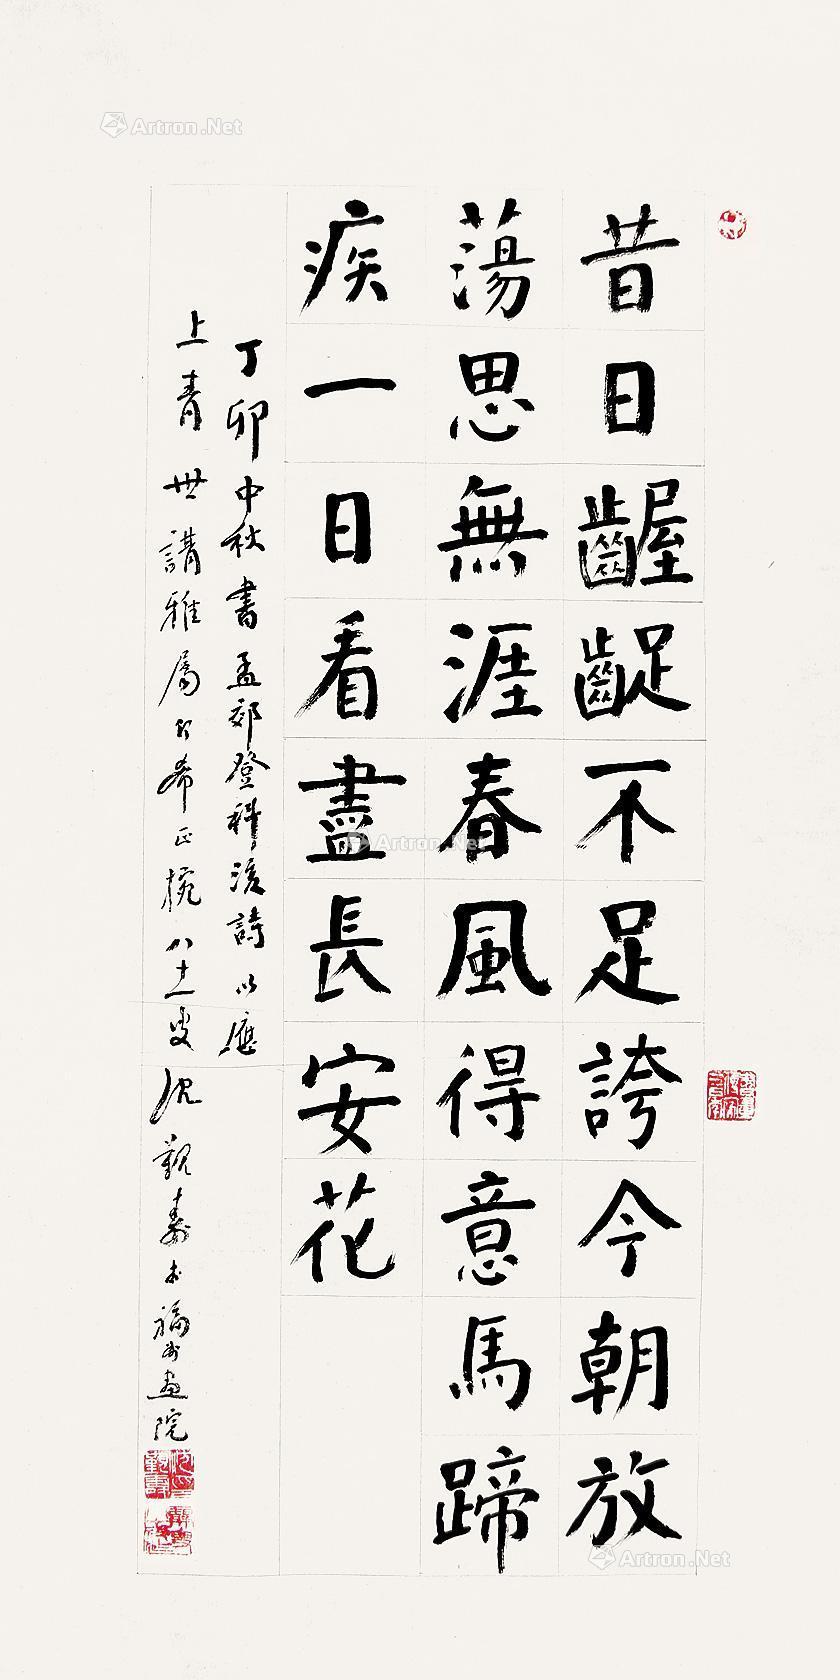 昔日齷齪不足誇今朝放
蕩思無涯春風得意馬蹄
疾一日看盡長安花
丁卯中秋書孟郊登科後詩以應
上青世講雅屬即希正腕八十一叟沈覲壽於福州畫院
Artron.Net
Artron.Net
Artron.Net